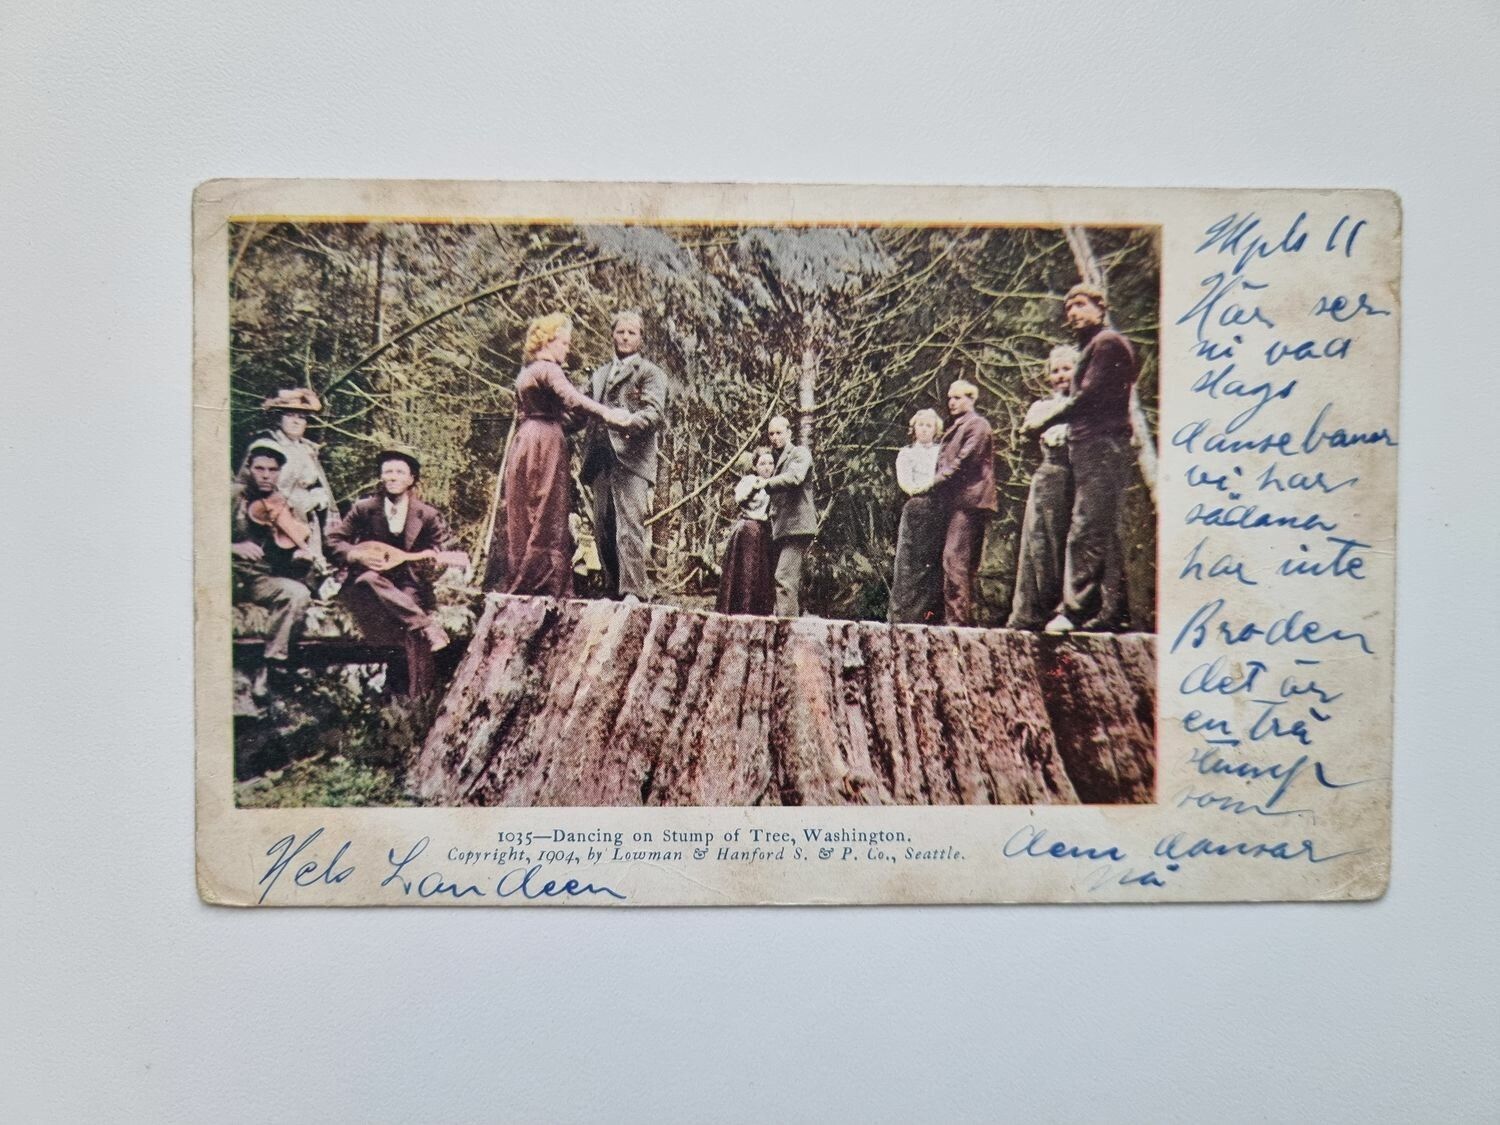 Mpls 11
Här ser
ni vad
slags
dansebanor
vi har
sådana
har inte
Broden
det är
en trä
stump
som
dem dansar
på
1035—Dancing on Stump of Tree, Washington.
Copyright, 1904, by Lowman & Hanford S. & P. Co., Seattle.
Nels Landeen